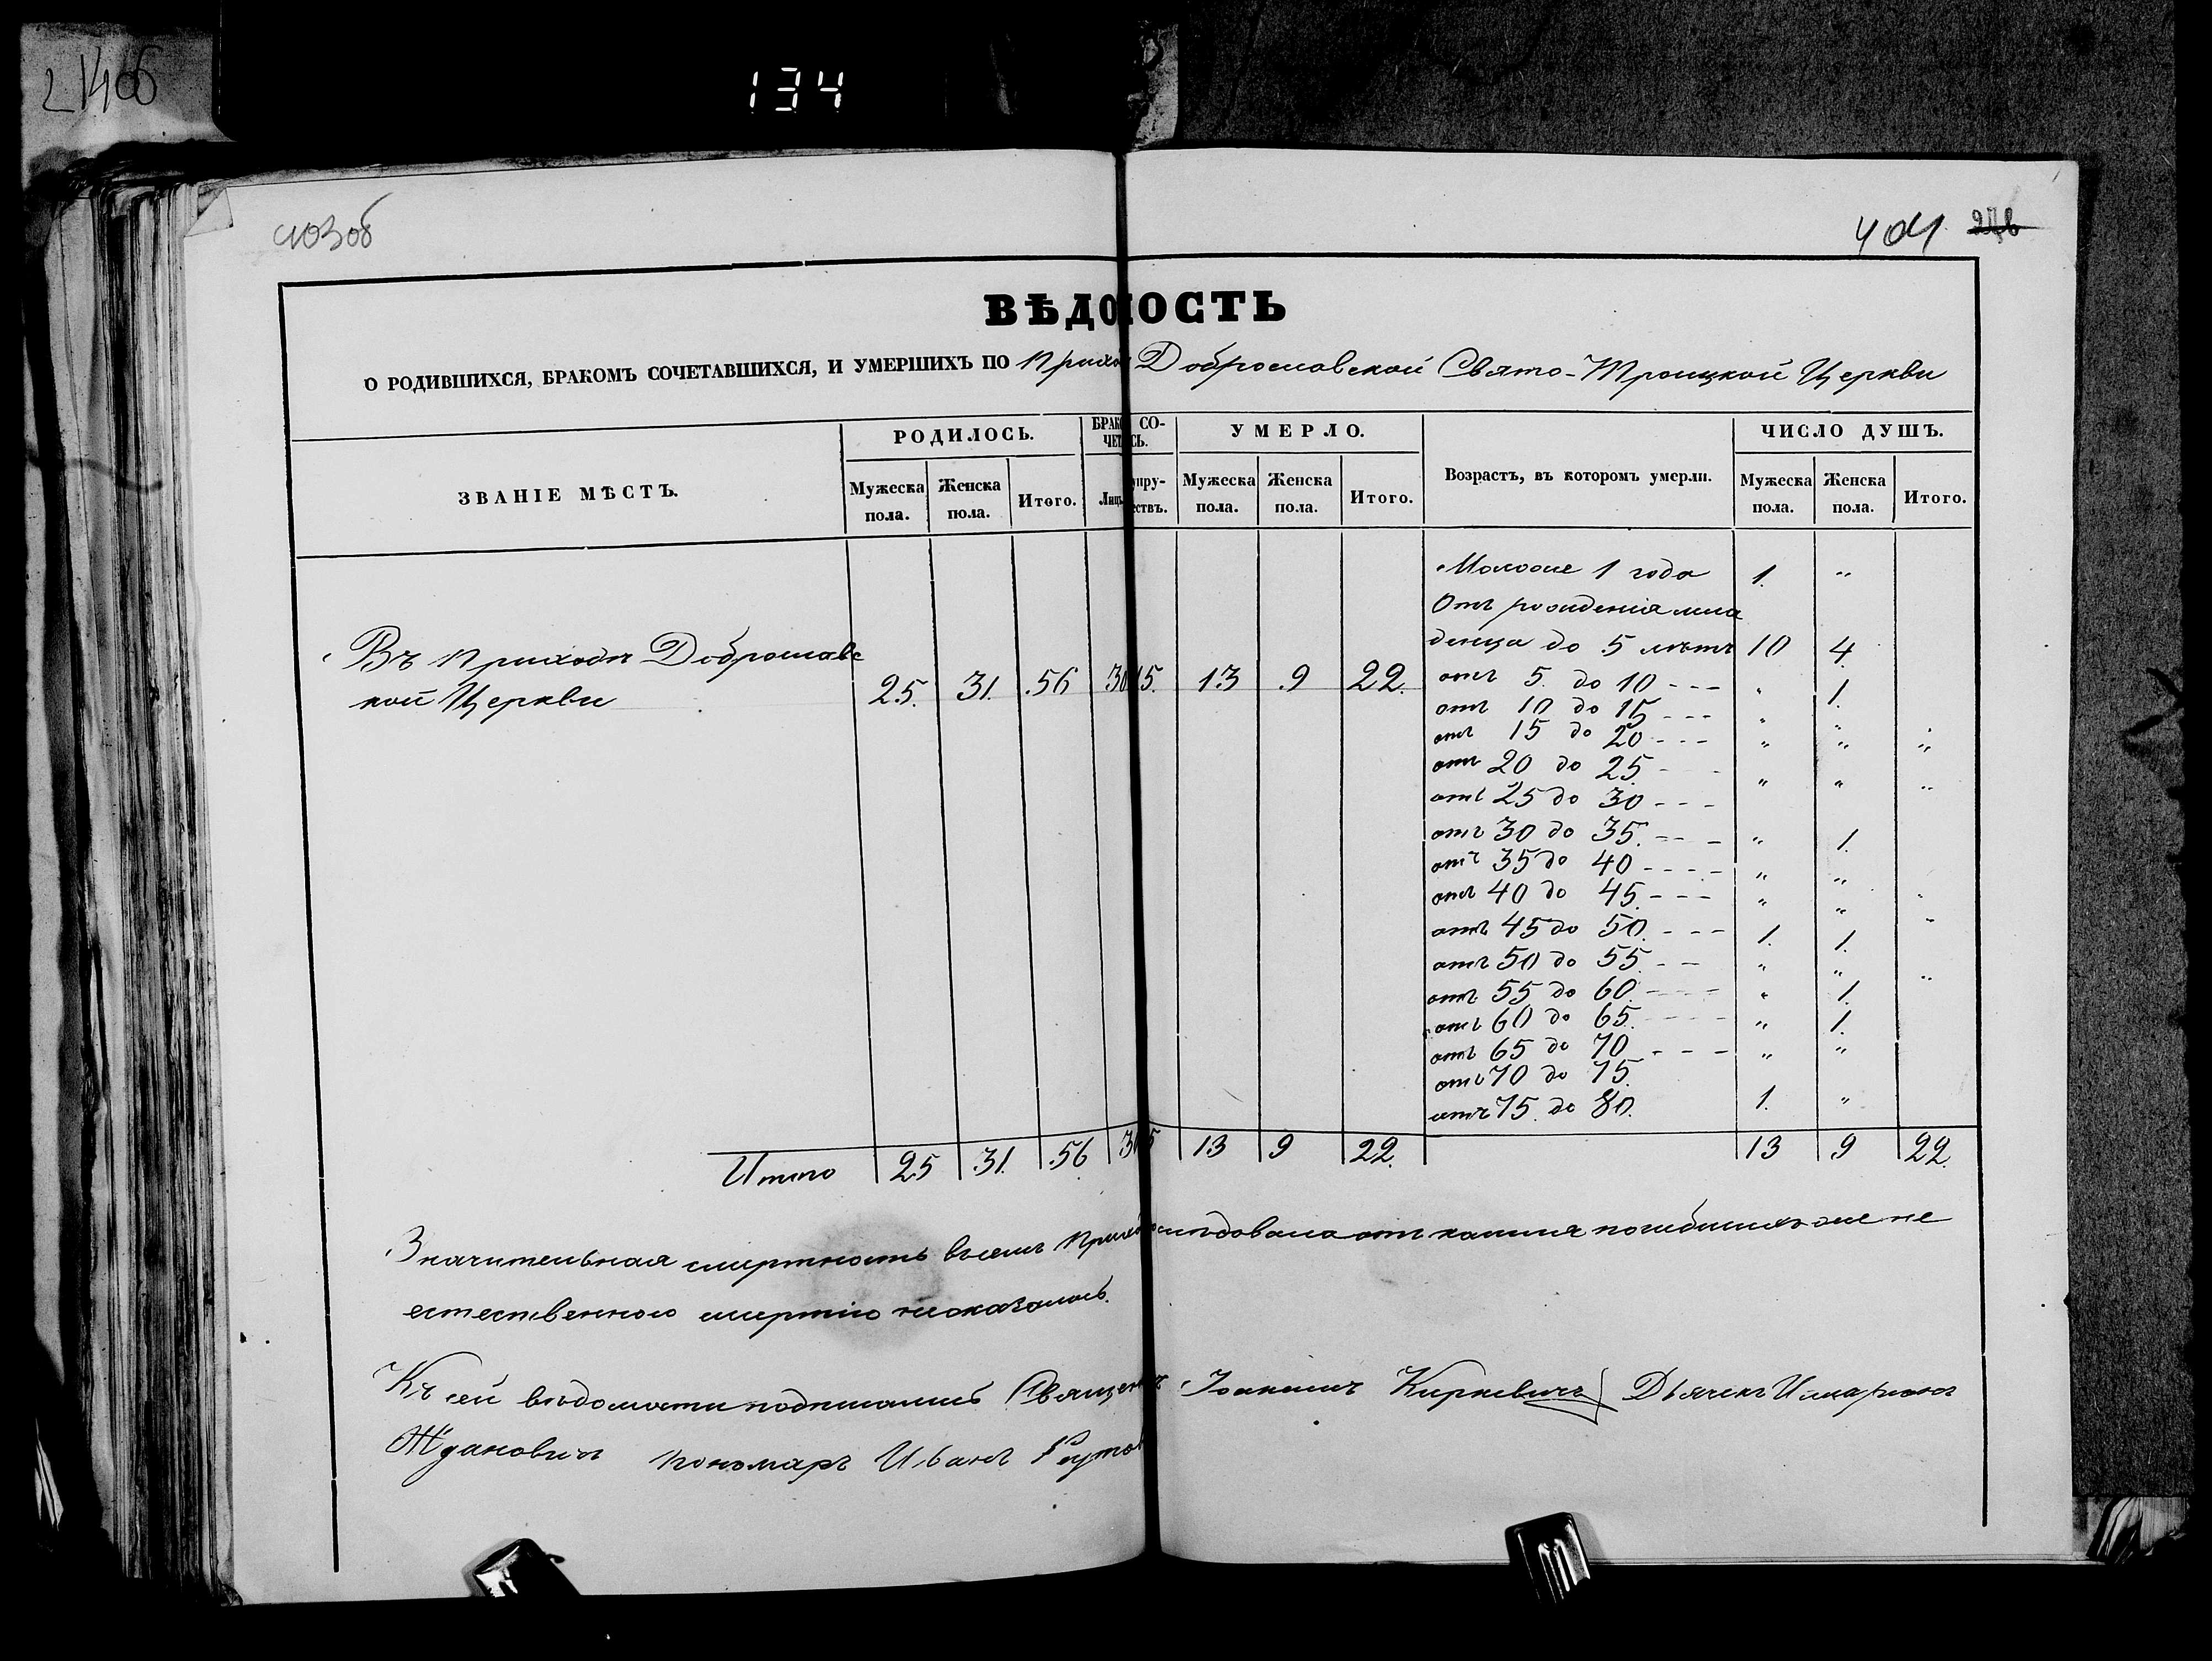 214об
134
403об
404 278
ВѢДОМОСТЬ
О РОДИВШИХСЯ, БРАКОМЪ СОЧЕТАВШИХСЯ, И УМЕРШИХЪ ПО Приход Доброславской Свято-Троицкой Церкви
ЗВАНІЕ МѢСТЪ. РОДИЛОСЬ. БРАКО СО- ЧЕТ СЬ. УМЕРЛО. Возрастъ, въ которомъ умерли. ЧИСЛО ДУШЪ.
Мужеска пола. Женска пола. Итого. Лицъ упру- ествъ. Мужеска пола. Женска пола. Итого. Мужеска пола. Женска пола. Итого.
Моложе 1 года 1. "
Отъ рожденія мла
денца до 5 лѣтъ 10 4.
Въ Приходѣ Доброславс
кой Церкви 25. 31. 56 30 15. 13 9 22.
отъ 5. до 10 - - - " 1.
отъ 10 до 15 - - - " "
отъ 15 до 20 - - - " " "
отъ 20 до 25 - - " " "
отъ 25 до 30 - - -
отъ 30 до 35. - - - " 1.
отъ 35 до 40 - - - - " "
отъ 40 до 45. - - - " " "
отъ 45 до 50. - - - 1. 1.
отъ 50 до 55 - - " " "
отъ 55 до 60. - - - - " 1.
отъ 60 до 65. - - - - " 1.
отъ 65 до 70 - - - " "
отъ 70 до 75.
отъ 75. до 80. 1. "
Итого 25 31. 56. 30 15 13 9 22. 13 9 22.
Значительная смертность въ семъ Приход слѣдовала отъ кашля погибшихъ же не
естественною смертію неоказалось.
Къ сей вѣдомости подписались Священ Іоакимъ Киркевичъ Дьячекъ Иларіонъ
Ждановичъ пономаръ Иванъ